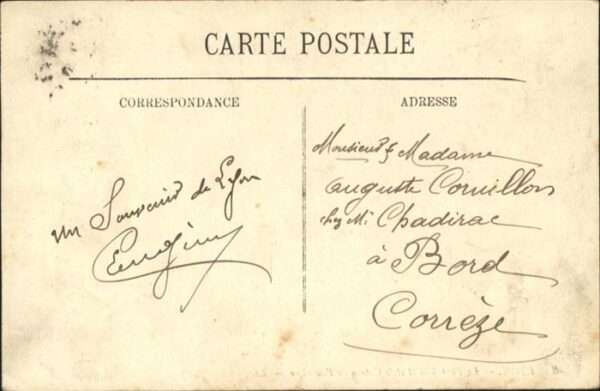 CARTE POSTALE
CORRESPONDANCE
ADRESSE
un Souvenir de Lyon
Monsieur & Madame
Auguste
chez Mr Chadirac
à Bord
Corrèze